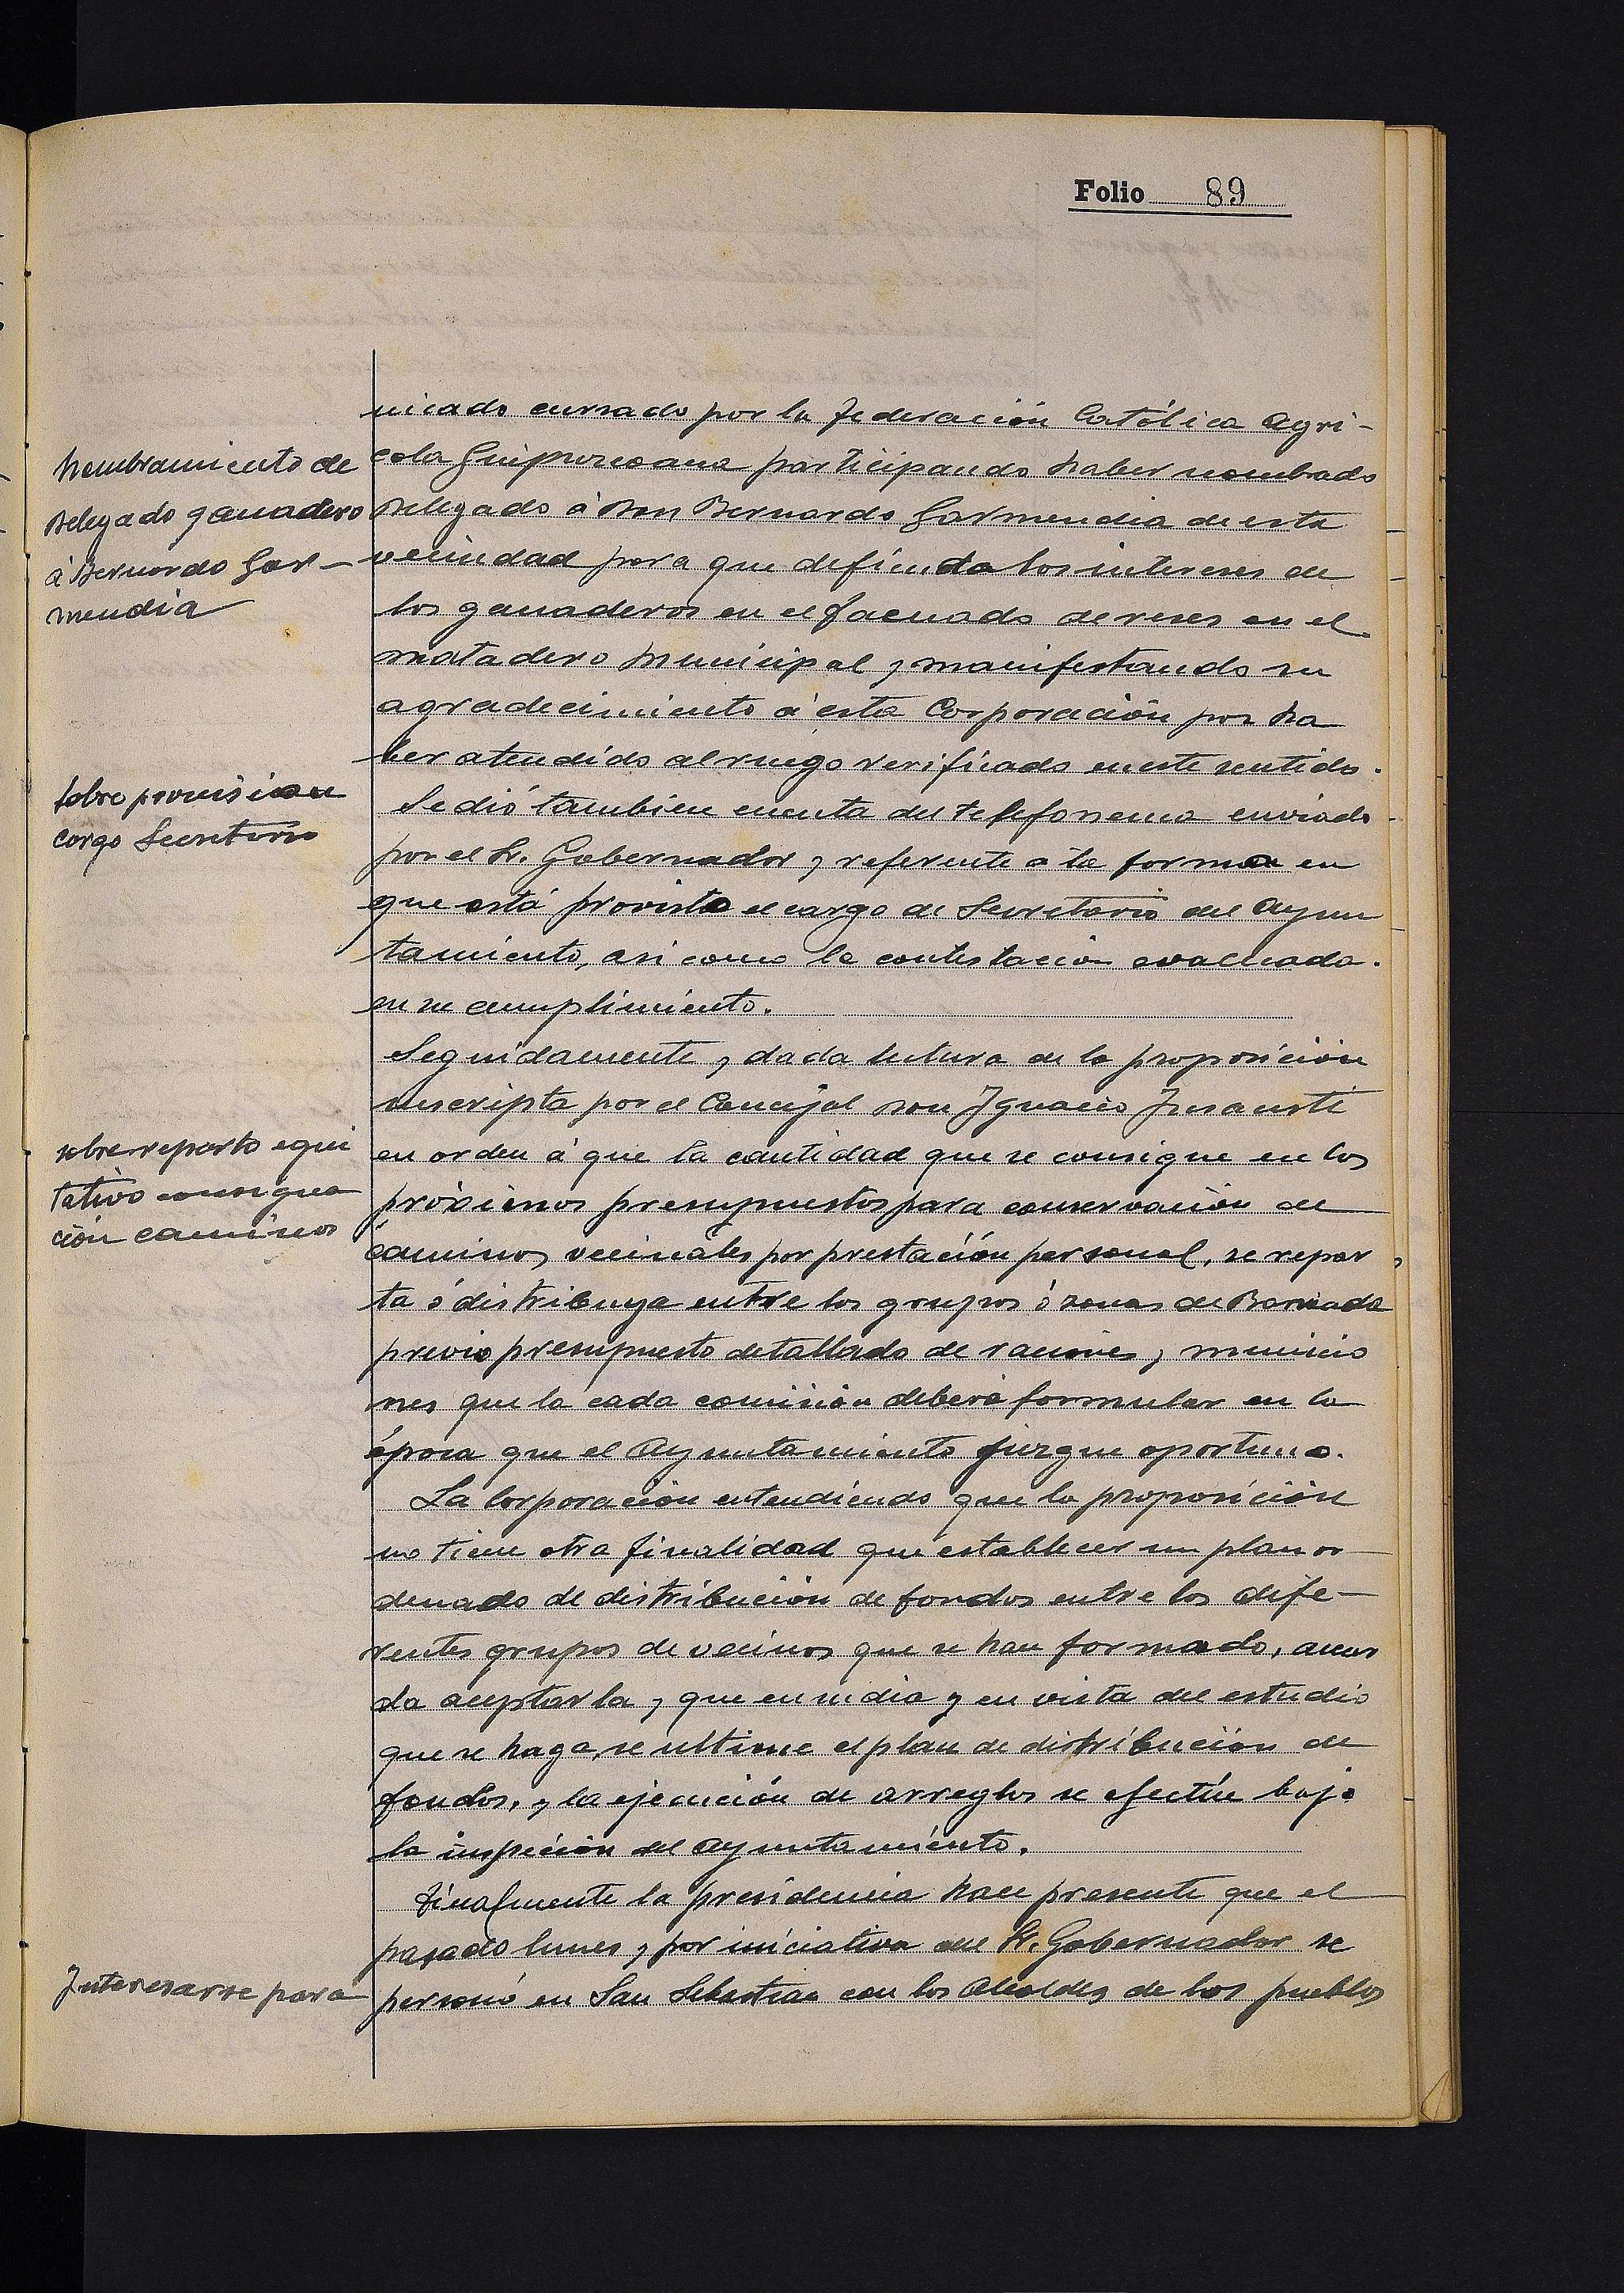 Folio 89
nicado cursado por la Federación Católica Agri-
cola Guipuzcoana participando haber nombrado
Delegado á Don Bernardo Garmendia de esta
vecindad para que defienda los intereses de
los ganaderos en el faenado de reses en el
matadero Municipal, manifestando su
agradecimiento á esta Corporación por ha
ber atendido al ruego verificado en este sentido.
Se dió tambien cuenta del telefonema enviado
por el Sr. Gobernador, referente a la forma en
que está provisto el cargo de Secretario del Ayun
tamiento, asi como la contestación evacuada
en su cumplimiento.
Seguidamente, dada lectura de la proposición
suscripta por el Concejal Don Ignacio Insausti
en orden á que la cantidad que se consigne en los
próximos presupuestos para conservación de
caminos vecinales por prestación personal, se repar
ta ó distribuya entre los grupos ó zonas de Barriada
previo presupuesto detallado de raciones, municio
nes que la cada comisión deberá formular en la
época que el Ayuntamiento juzgue oportuno.
La Corporación entendiendo que la proposición
no tiene otra finalidad que establecer un plan or
denado de distribución de fondos entre los dife-
rentes grupos de vecinos que se han formado, acuer
da aceptarla, que en su dia y en vista del estudio
que se haga, se ultime el plan de distribución de
fondos, y la ejecución de arreglos se efectúe bajo
la inspeción del Ayuntamiento.
Finalmente la presidencia hace presente que el
pasado lunes, por iniciativa del Sr. Gobernador se
personó en San Sebastian con los Alcaldes de los pueblos
Nombramiento de
Delegado ganadero
á Bernardo Gar-
mendia
Sobre provision
cargo Secretario
sobre reparto equi
tativo consigna
ción caminos
Interesarse para